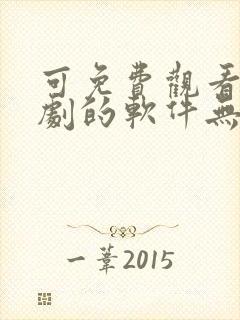 可免費觀看
劇的軟件無
一葦2015